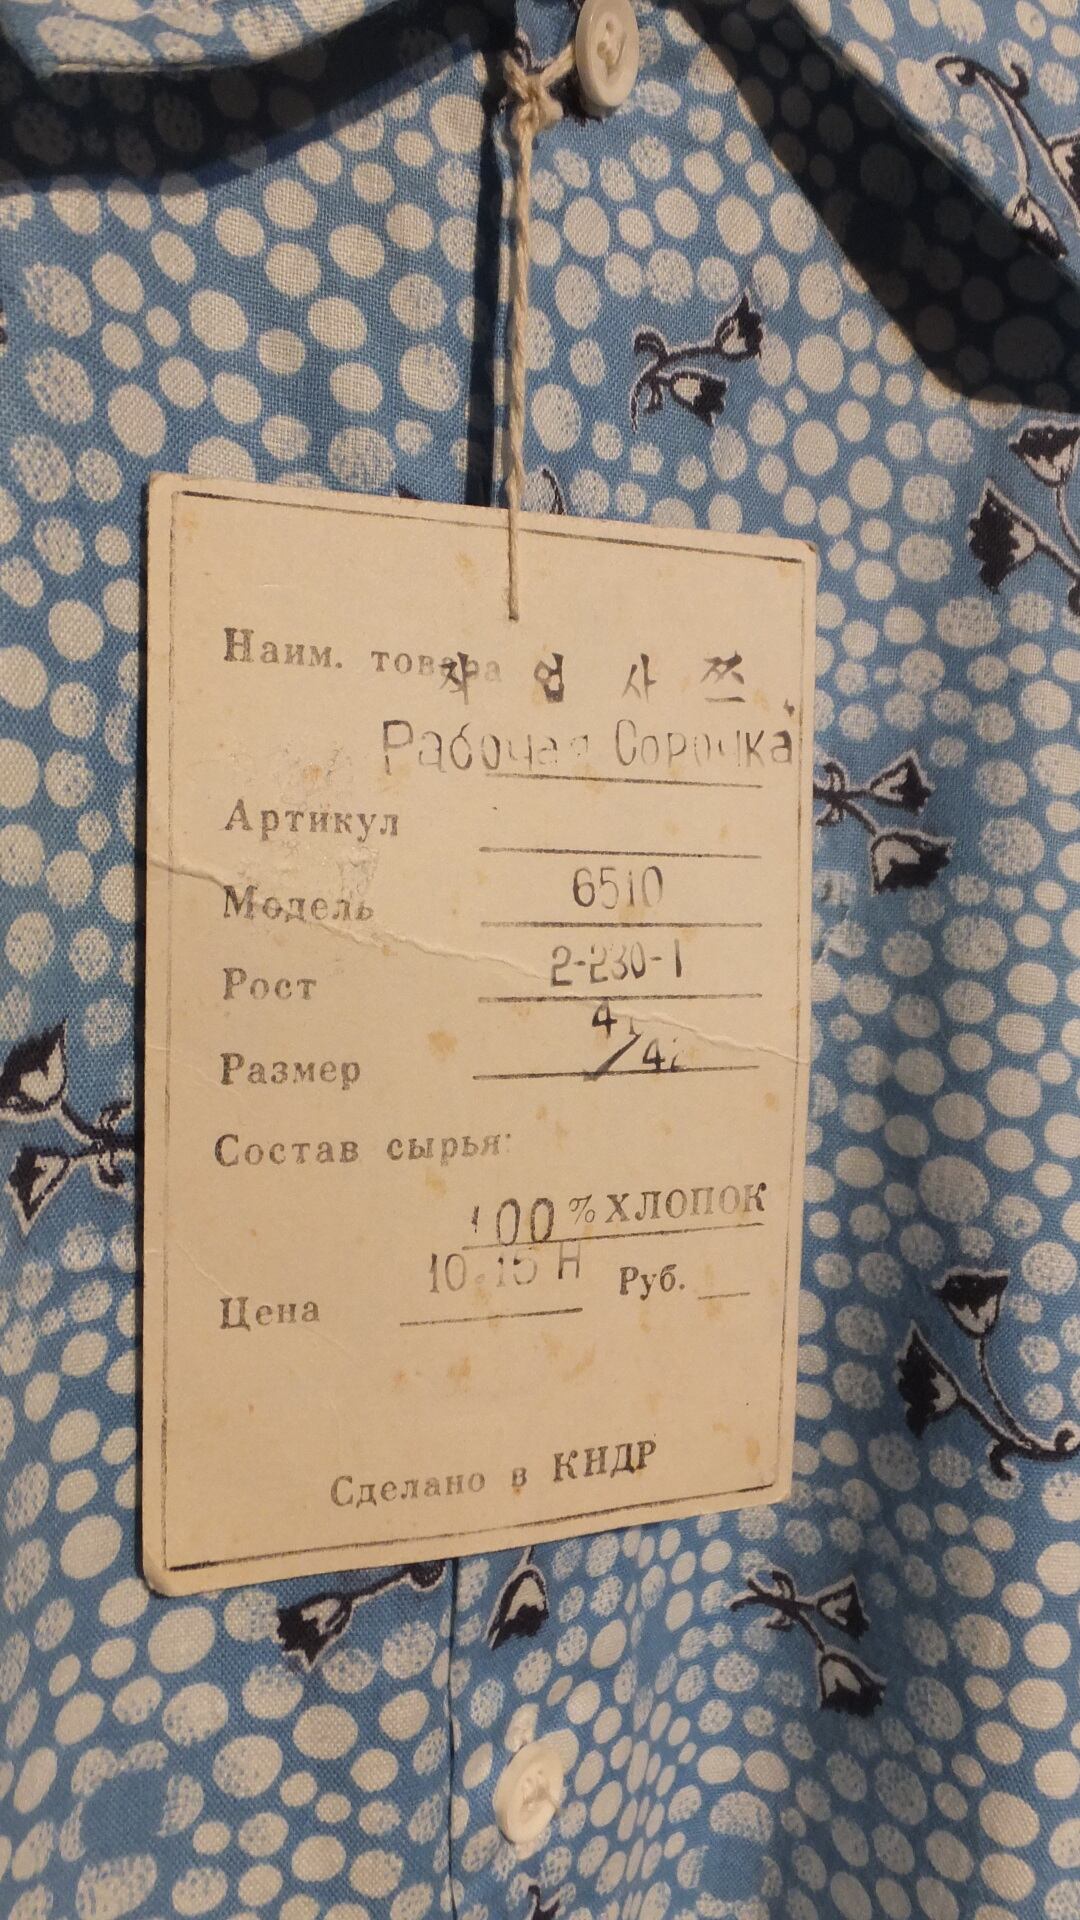 Наим. товара 작 업 사 쯔
Рабочая Сорочка
Артикул
Модель 6510
Рост 2-230-1
Размер 41/42
Состав сырья:
100% ХЛОПОК
Цена 10.15 Н Руб.
Сделано в КНДР